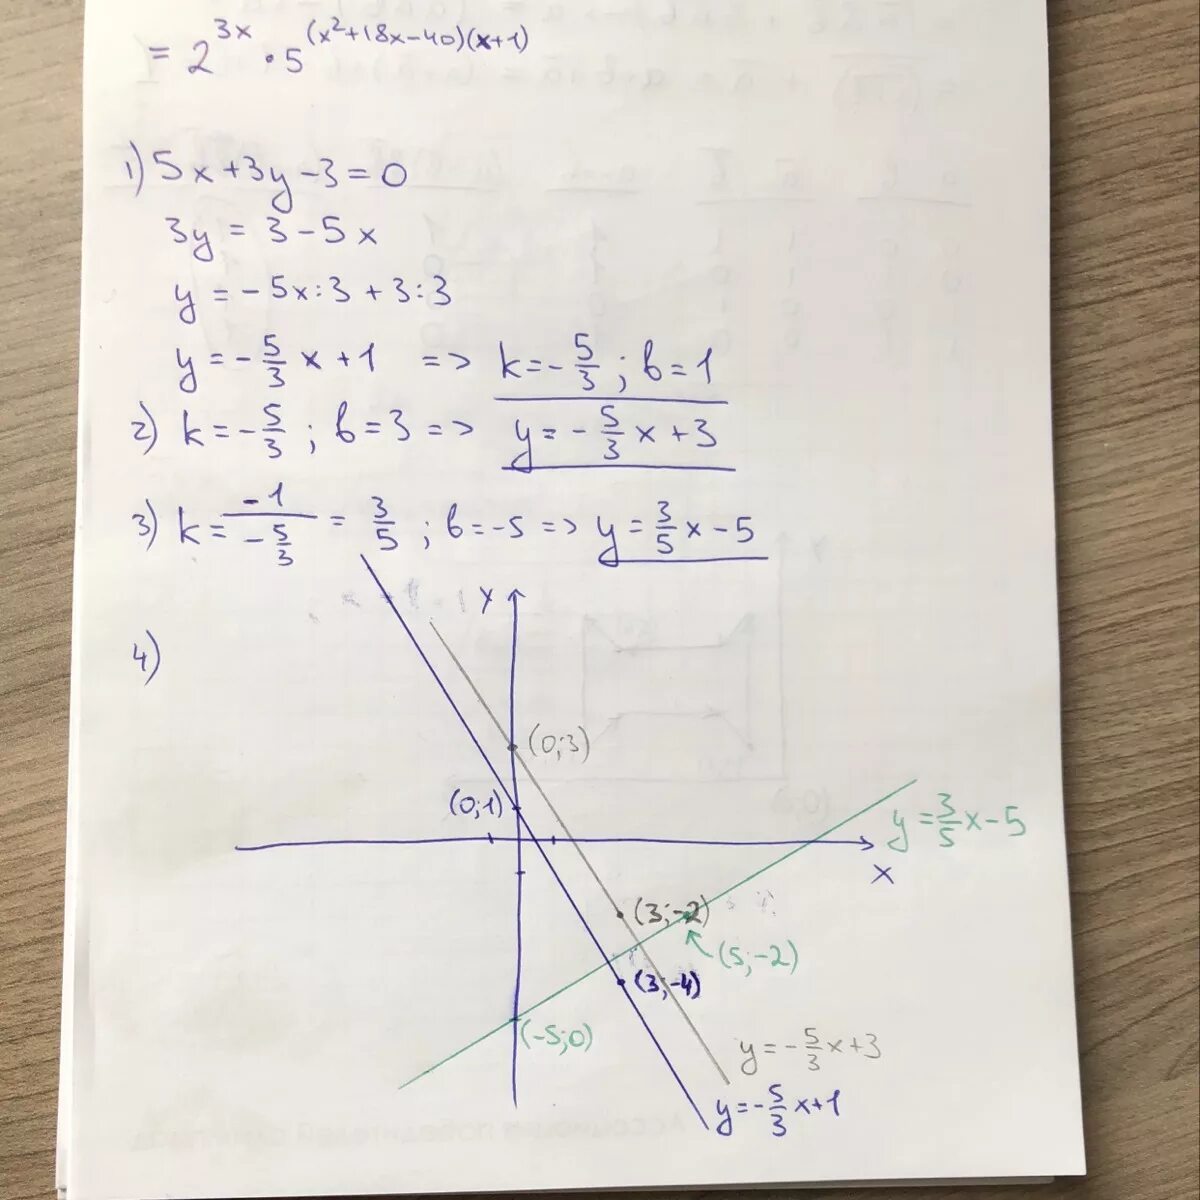 = 2^3x · 5^(x²+18x-40)(x+1)
1) 5x+3y-3=0
3y = 3-5x
y = -5x:3 + 3:3
y = -5/3 x + 1 => k = -5/3 ; b = 1
2) k = -5/3 ; b = 3 => y = -5/3 x + 3
3) k = -1/(-5/3) = 3/5 ; b = -5 => y = 3/5 x - 5
4)
y
(0;3)
(0;1)
y = 3/5 x - 5
x
(3;-2)
(5;-2)
(3;-4)
(-5;0)
y = -5/3 x + 3
y = -5/3 x + 1